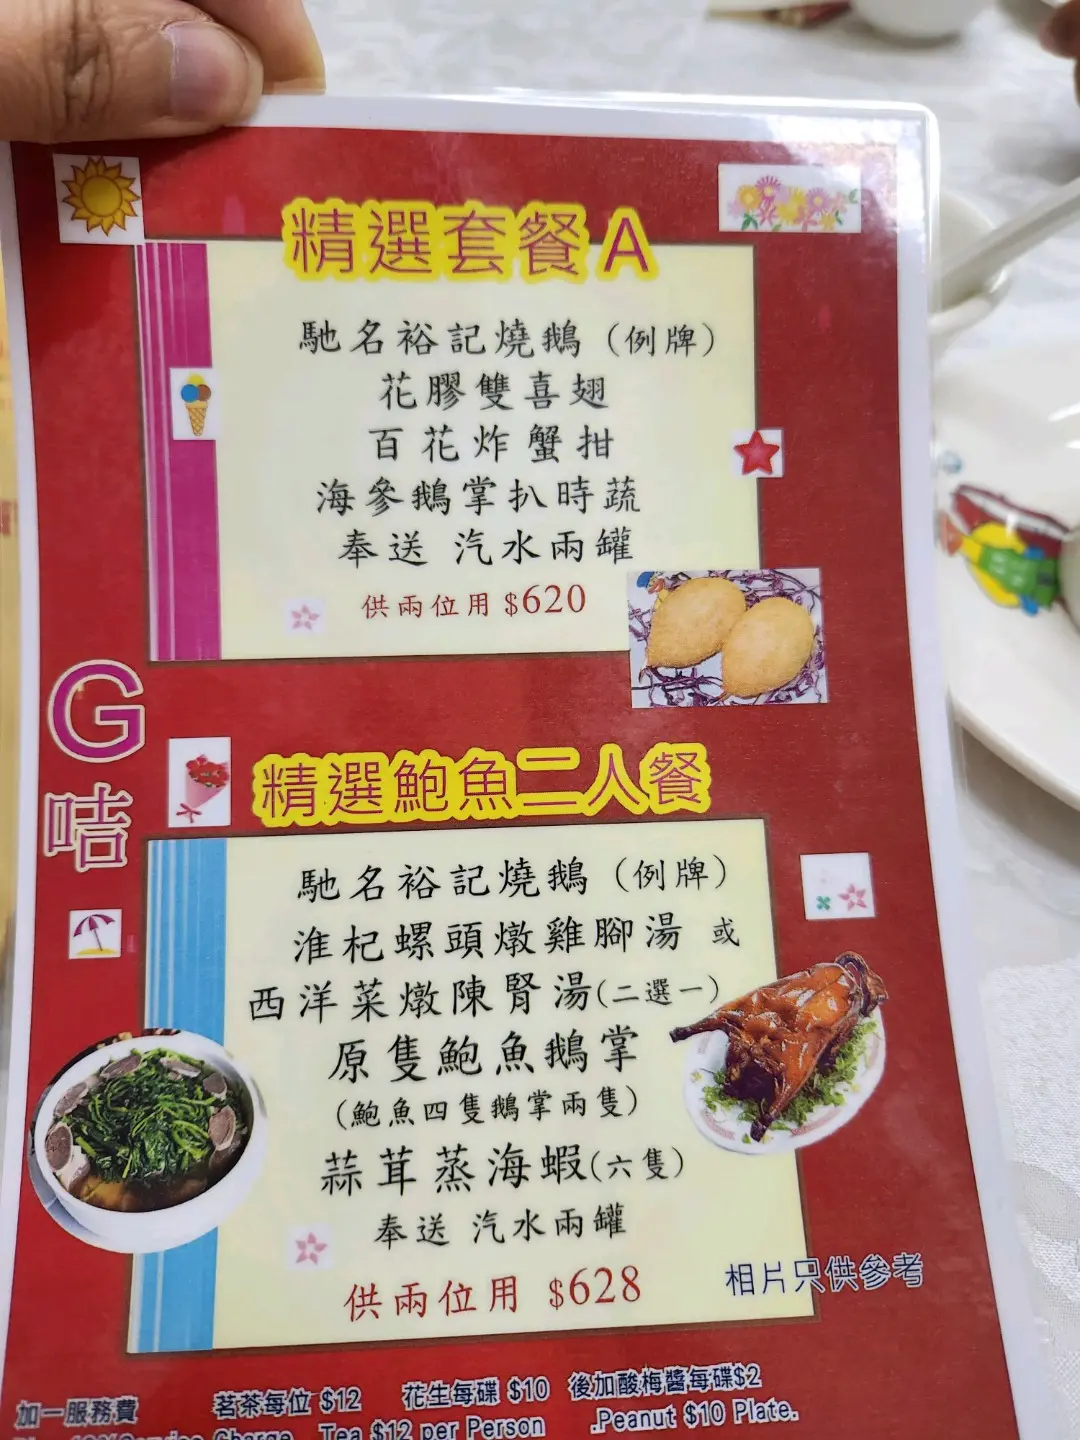 精選套餐A
馳名裕記燒鵝（例牌）
花膠雙喜翅
百花炸蟹拑
海參鵝掌扒時蔬
奉送 汽水兩罐
供兩位用 $620
G
咭
精選鮑魚二人餐
馳名裕記燒鵝（例牌）
淮杞螺頭燉雞腳湯 或
西洋菜燉陳腎湯(二選一)
原隻鮑魚鵝掌
(鮑魚四隻鵝掌兩隻)
蒜茸蒸海蝦(六隻)
奉送 汽水兩罐
供兩位用 $628
相片只供參考
加一服務費 茗茶每位 $12 花生每碟 $10 後加酸梅醬每碟$2
Service Charge Tea $12 per Person .Peanut $10 Plate.